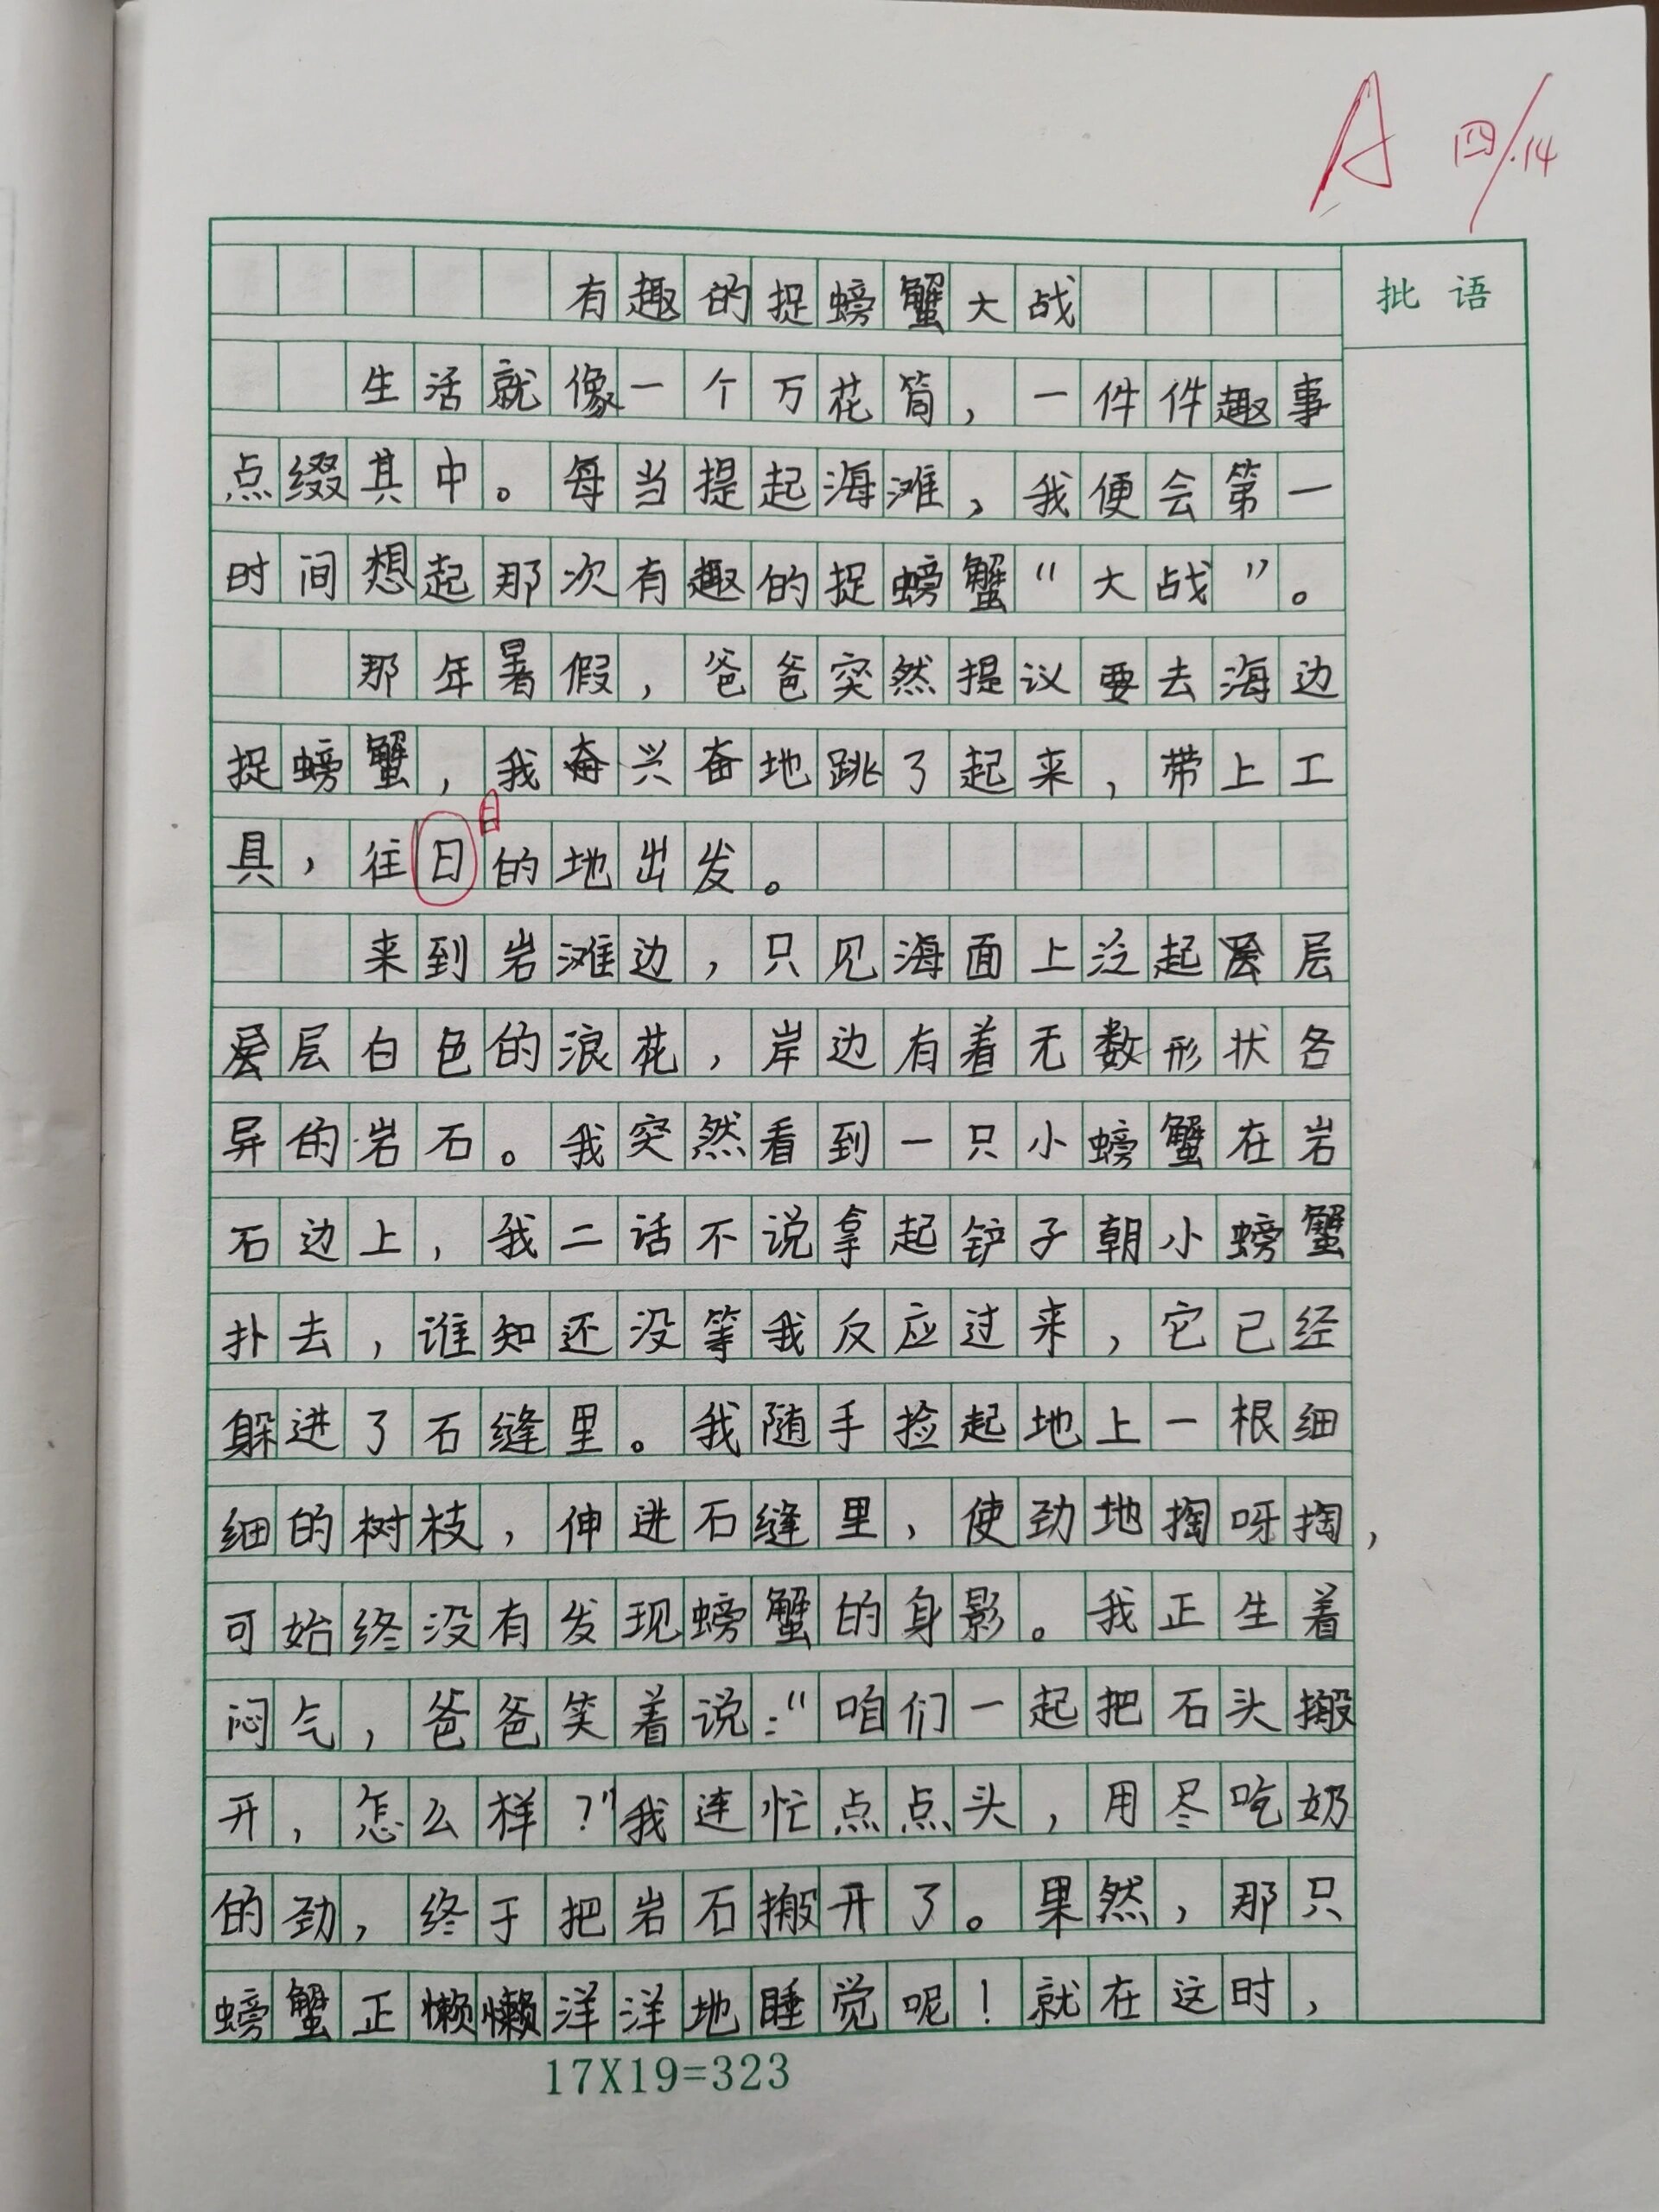 A 四/.14
批语
有趣的捉螃蟹大战
生活就像一个万花筒，一件件趣事
点缀其中。每当提起海滩，我便会第一
时间想起那次有趣的捉螃蟹“大战”。
那年暑假，爸爸突然提议要去海边
捉螃蟹，我兴奋地跳了起来，带上工
目
具，往日的地出发。
来到岩滩边，只见海面上泛起层
层白色的浪花，岸边有着无数形状各
异的岩石。我突然看到一只小螃蟹在岩
石边上，我二话不说拿起铲子朝小螃蟹
扑去，谁知还没等我反应过来，它已经
躲进了石缝里。我随手捡起地上一根细
细的树枝，伸进石缝里，使劲地掏呀掏，
可始终没有发现螃蟹的身影。我正生着
闷气，爸爸笑着说：“咱们一起把石头搬
开，怎么样？”我连忙点点头，用尽吃奶
的劲，终于把岩石搬开了。果然，那只
螃蟹正懒懒洋洋地睡觉呢！就在这时，
17X19=323